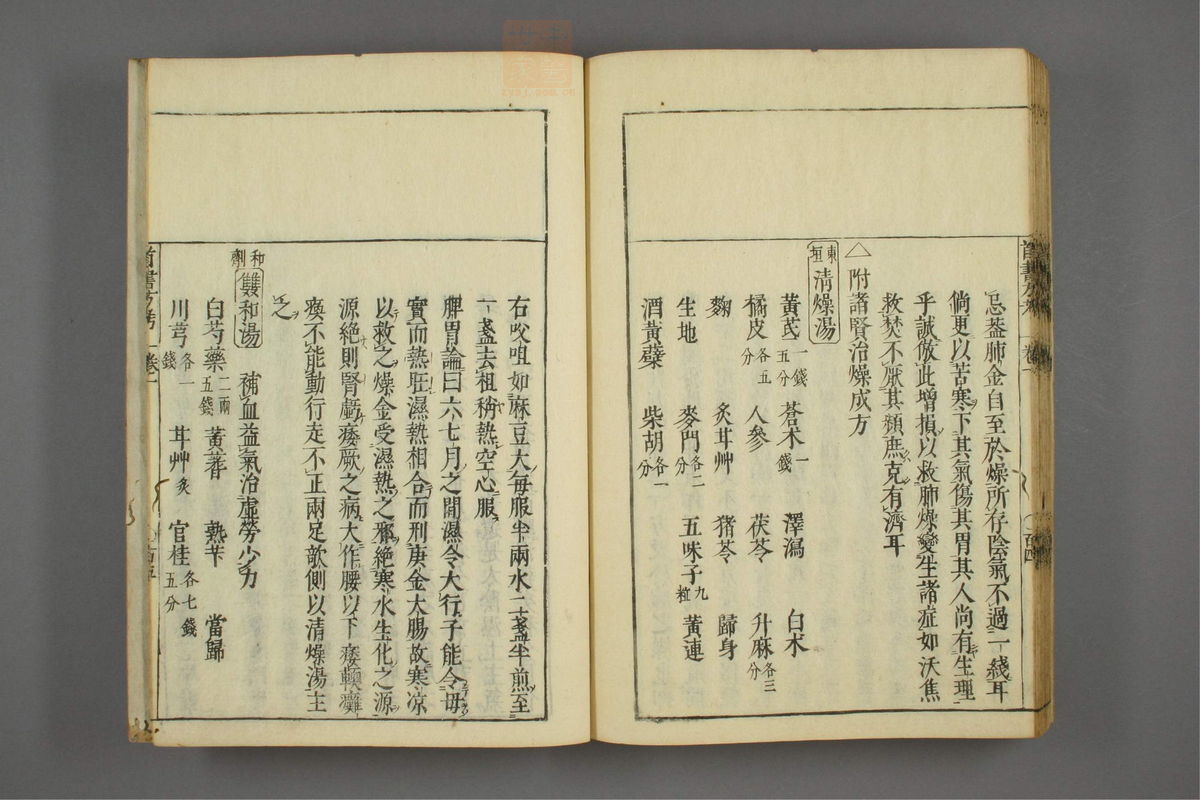 忌葢肺金自至於燥所存陰氣不過一綫耳
倘更以苦寒下其氣傷其胃其人尚有生理
乎誠倣此增損以救肺燥變生諸症如沃焦
救焚不厭其頻庶克有濟耳
△附諸賢治燥成方
東垣 清燥湯
黃芪一錢五分 蒼朮一錢 澤瀉 白朮
橘皮各五分 人參 茯苓 升麻各三分
麴 炙甘艸 豬苓 歸身
生地 麥門各二分 五味子九粒 黃連
酒黃蘗 柴胡各一分
右㕮咀如麻豆大每服半兩水二盞半煎至
一盞去柤稍熱空心服
脾胃論曰六七月之間濕令大行子能令母
實而熱旺濕熱相合而刑庚金大腸故寒凉
以救之燥金受濕熱之邪絕寒水生化之源
源絕則腎虧痿厥之病大作腰以下痿軟癱
瘓不能動行走不正兩足欹側以清燥湯主
之
和劑 雙和湯 補血益氣治虛勞少力
白芍藥二兩五錢 黃蓍 熟苄 當歸
川芎各一錢 甘艸炙 官桂各七錢五分